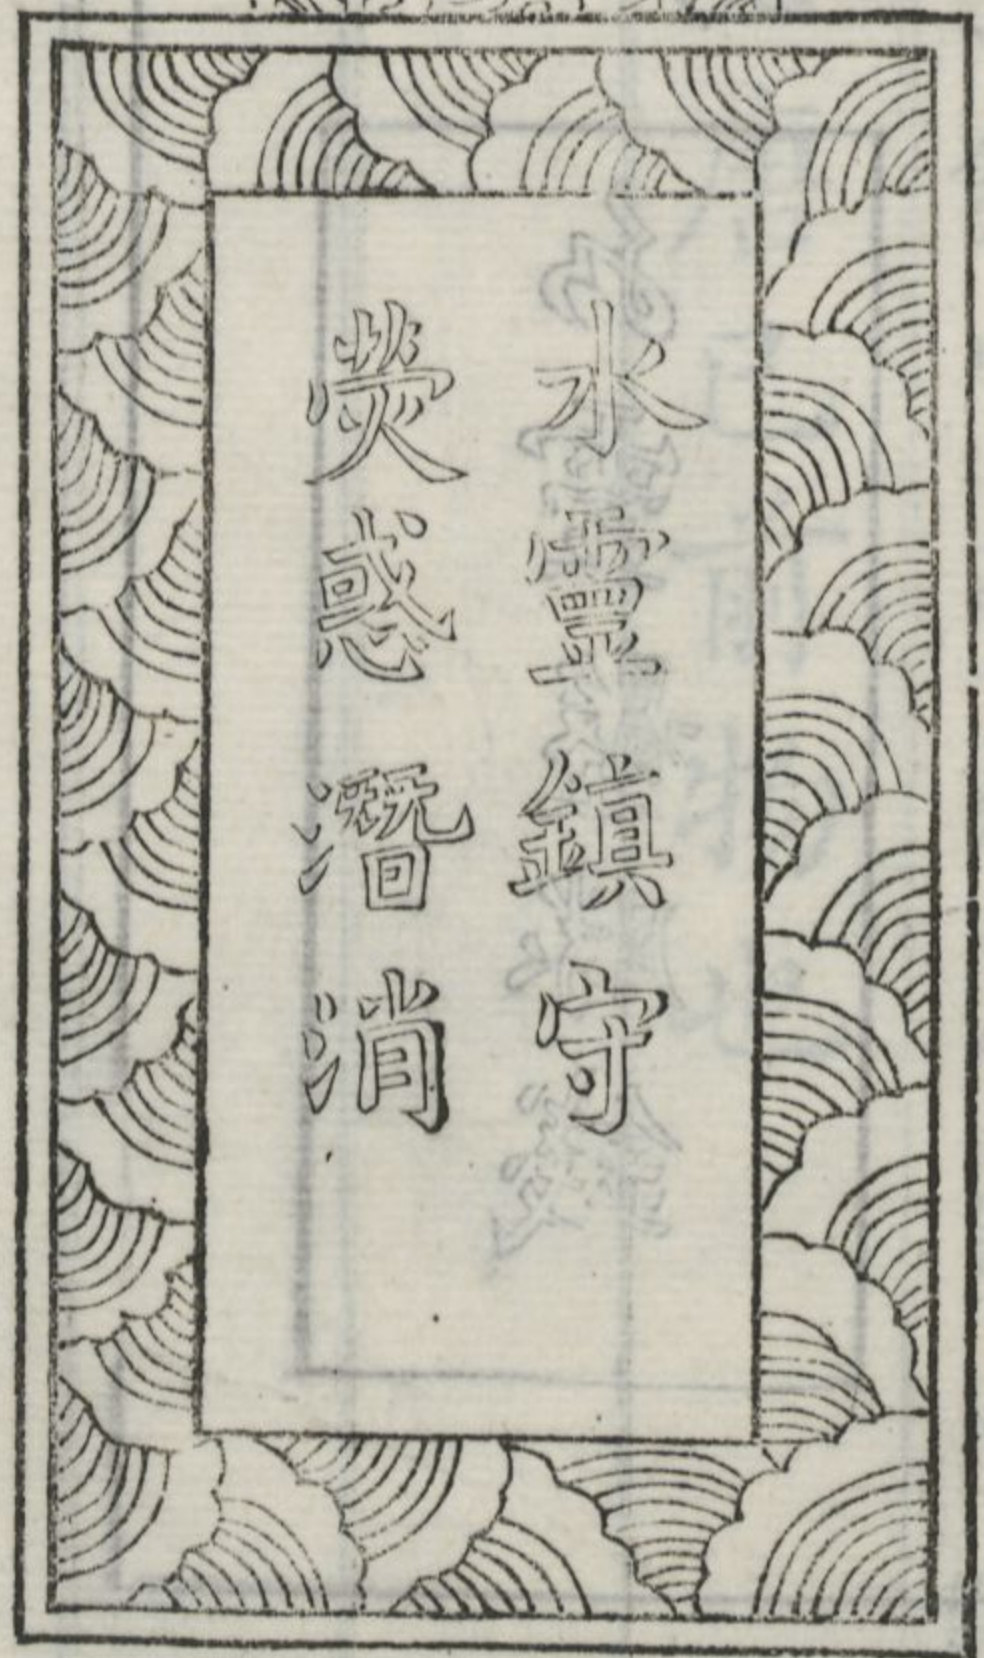 水靈鎮守
熒惑潛消